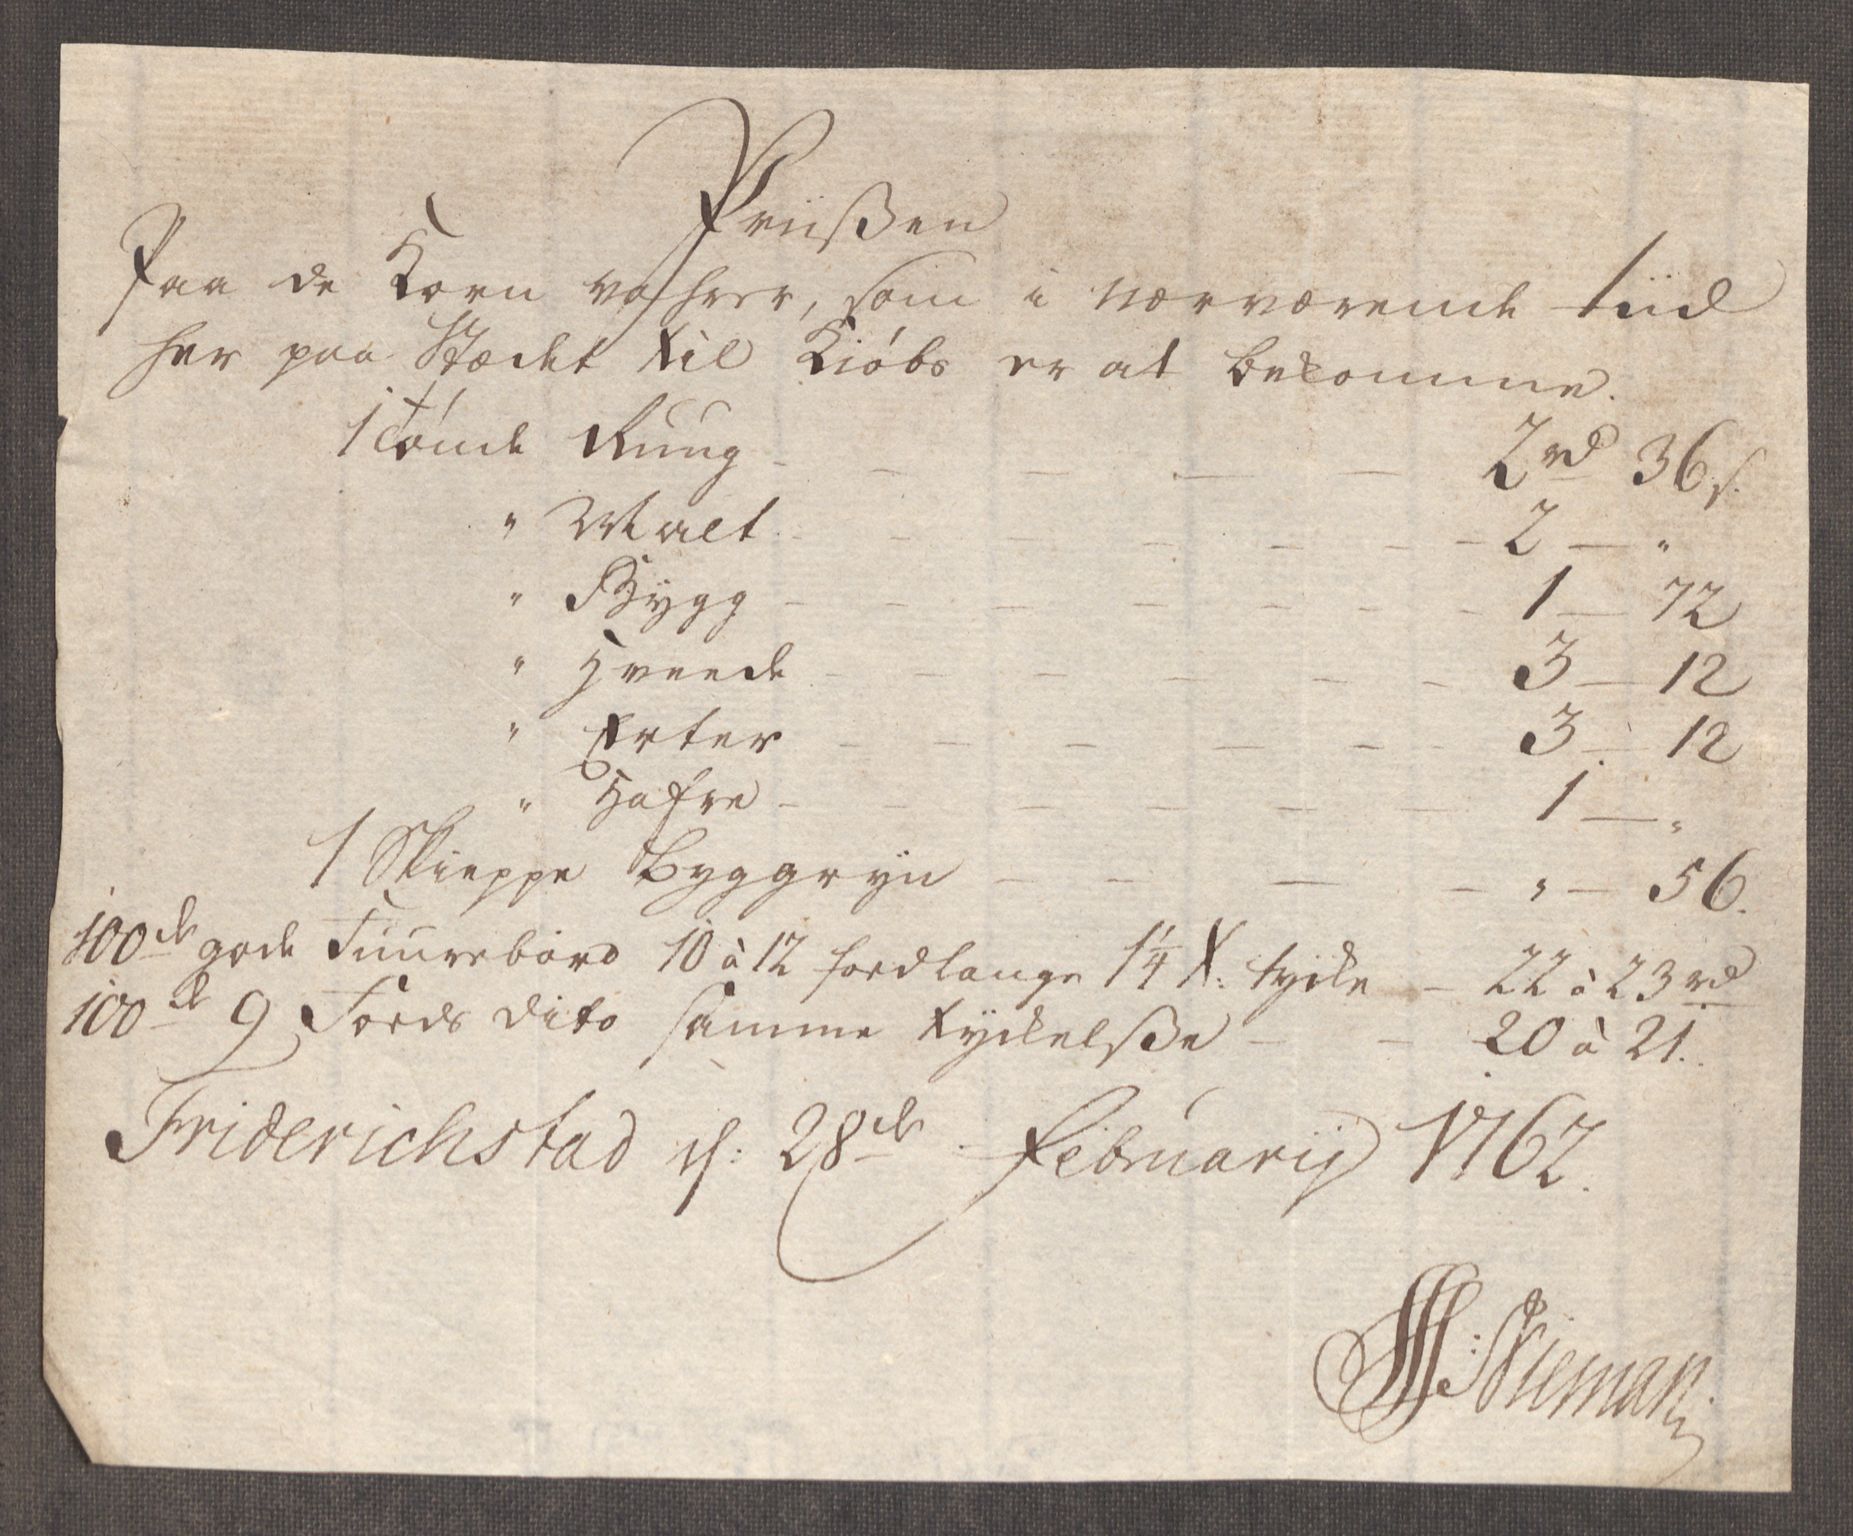 Priißen
Paa de Korn vahrer, som i nærværende tiid
her paa Stædet til Kiøbs er at bekomme.
1 Tønde Ruug - - - - - 2 rd 36 s.
" Malt - - - - - - 2 — "
" Bygg - - - - - - 1 — 72
" Hveede - - - - - - 3 — 12
" Erter - - - - - - 3 — 12
" Hafre - - - - - - 1 — "
1 Skieppe Byggryn - - - - " — 56.
100de gode Fuurebord 10 à 12 foed lange 1 1/4 X: tycke - 22 à 23 rd
100de 9 Foeds dito samme tyckelße - - 20 à 21.
Friderichstad d: 28de Februarij 1762.